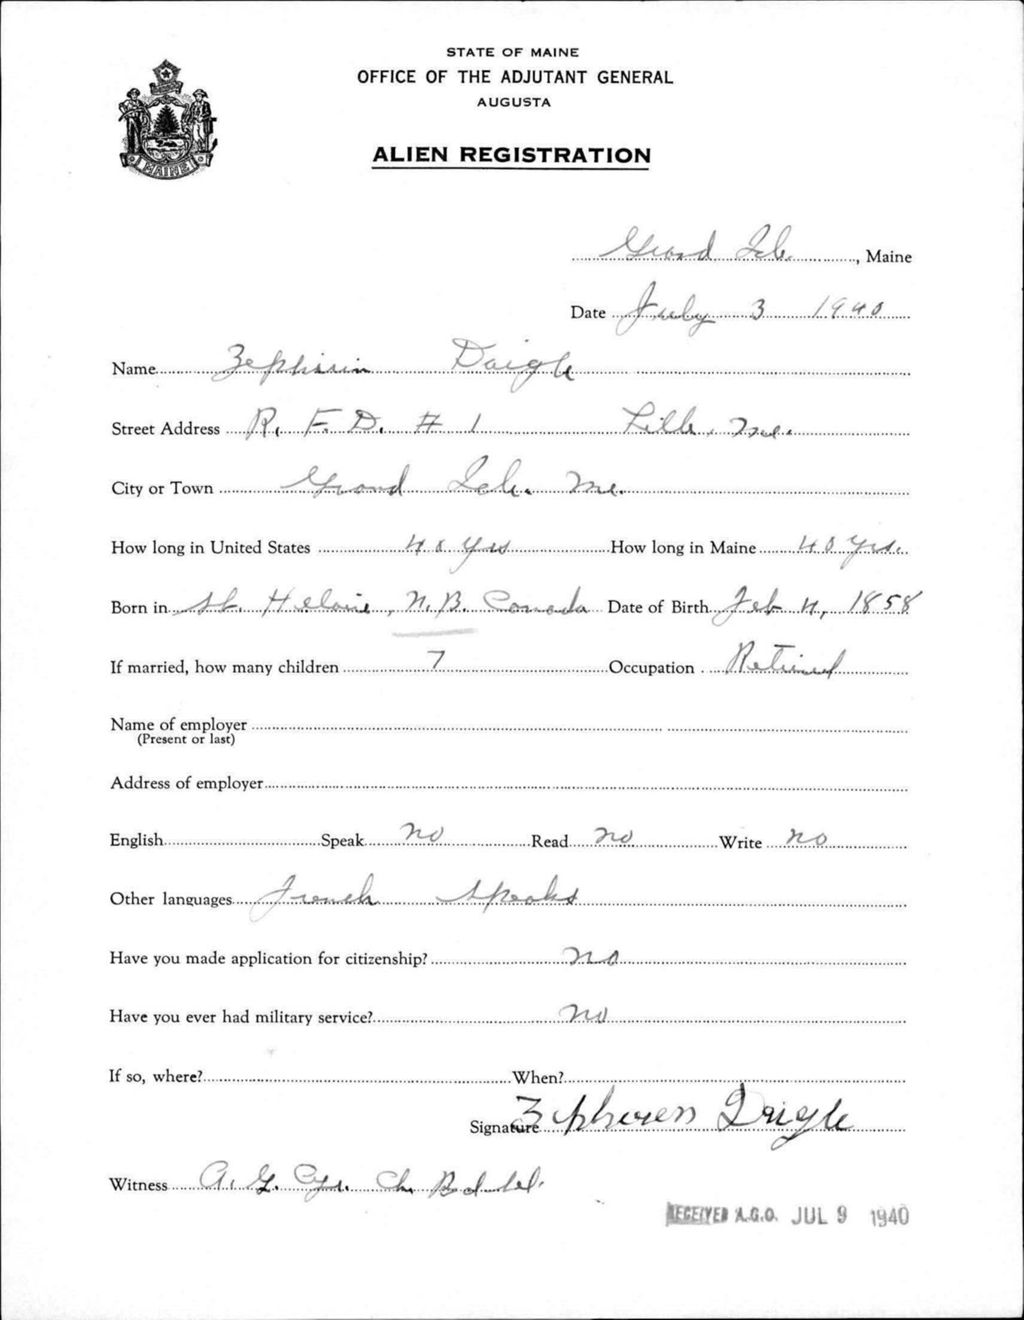 STATE OF MAINE
OFFICE OF THE ADJUTANT GENERAL
AUGUSTA
ALIEN REGISTRATION
MAINE
Grand Isle, Maine
Date July 3 1940
Name Zephirin Daigle
Street Address R. F. D. # 1 Lille, Me.
City or Town Grand Isle. Me.
How long in United States 40 yrs How long in Maine 40 yrs.
Born in St. Hilaire, N. B. Canada Date of Birth Feb 4, 1858
If married, how many children 7 Occupation Retired
Name of employer
(Present or last)
Address of employer
English Speak no Read no Write no
Other languages French speaks
Have you made application for citizenship? no
Have you ever had military service? no
If so, where? When?
Signature Zephiren Daigle
Witness A. G. Cyr. Ch.
RECEIVED A.G.O. JUL 9 1940